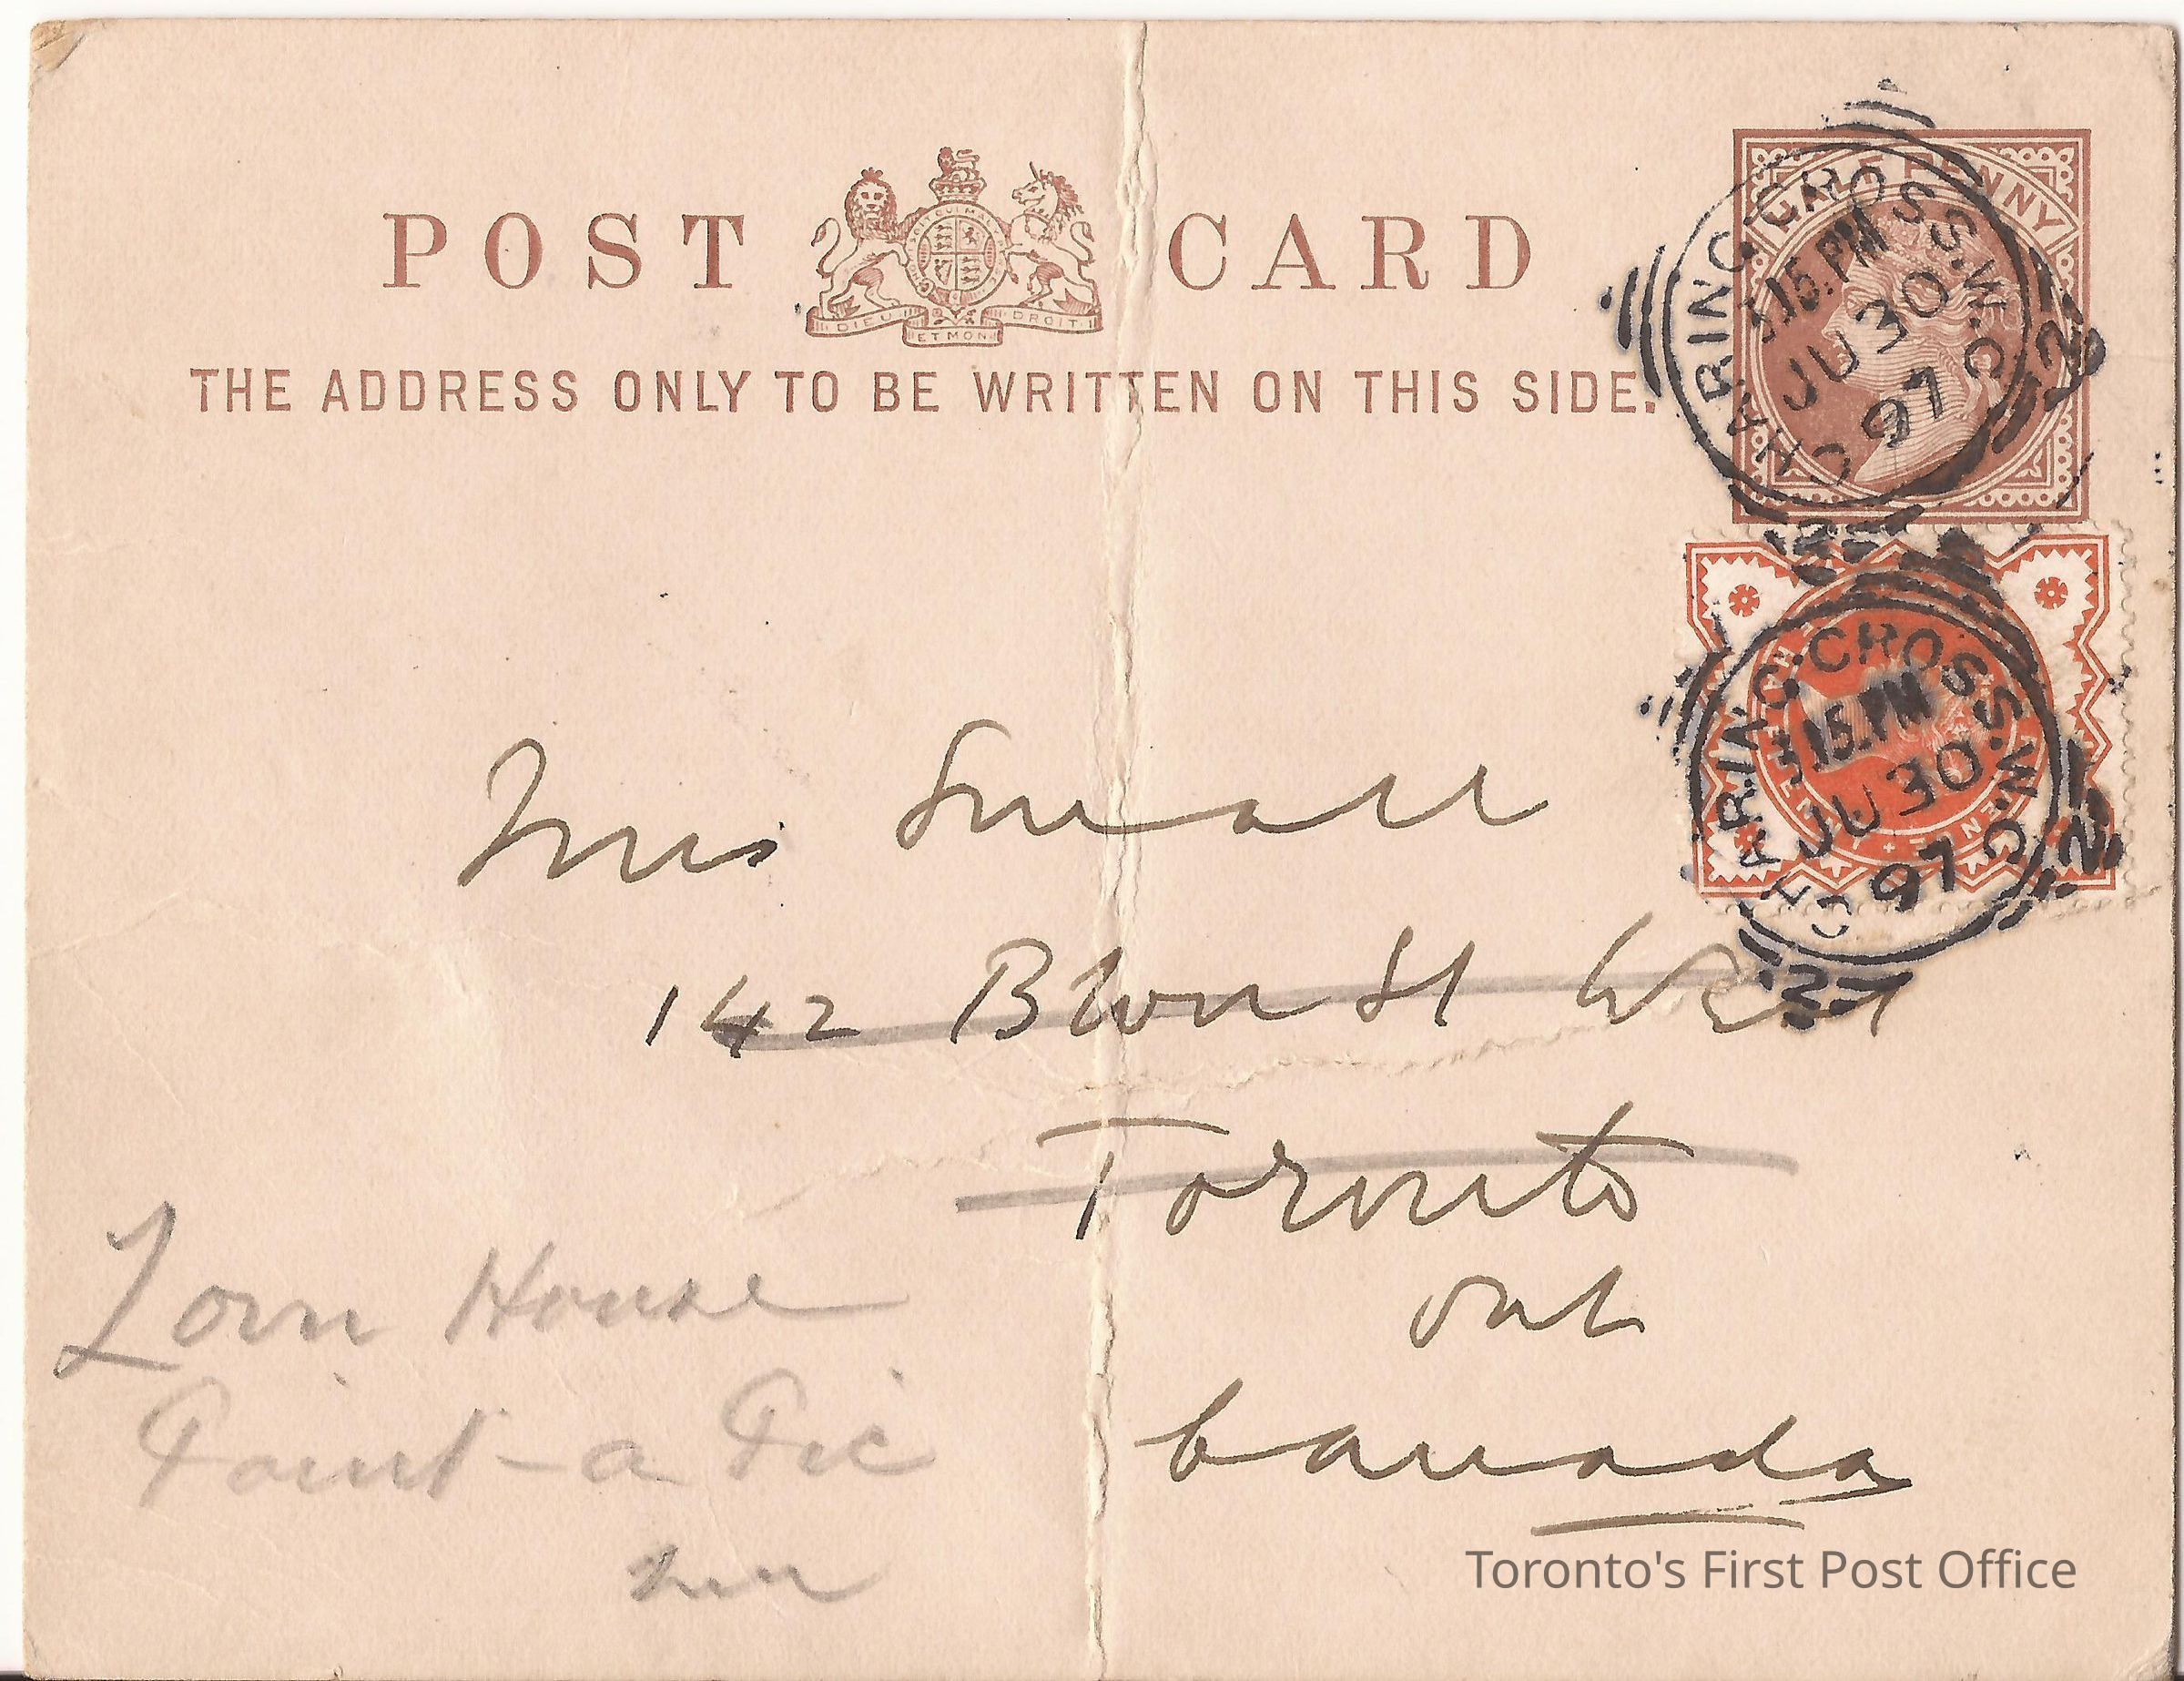 POST CARD
DIEU ET MON DROIT
THE ADDRESS ONLY TO BE WRITTEN ON THIS SIDE.
HALF PENNY
CHARING.CROSS.S.W.C
3.15.PM
JU 30
97
2
2
CHARING.CROSS.S.W.C
3.15.PM
JU 30
97
2
2
Mrs Small
142 Bloor St West
Toronto
Ont
Canada
Lorn House
Point-a Pic
Toronto's First Post Office